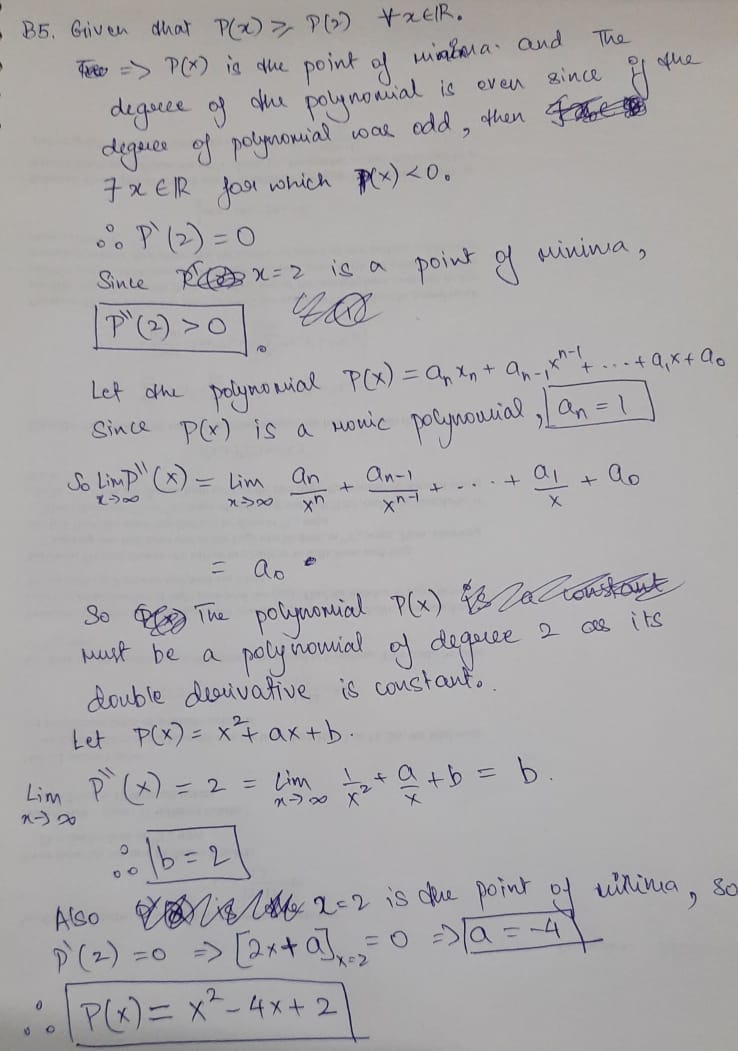 B5. Given that P(x) ≥ P(2) ∀x∈ℝ.
=> P(x) is the point of minima. and The
degree of the polynomial is even since if the
degree of polynomial was odd, then
∃ x ∈ ℝ for which P(x) < 0.
∴ P'(2) = 0
Since x = 2 is a point of minima,
P''(2) > 0.
Let the polynomial P(x) = aₙ xₙ + aₙ₋₁ xⁿ⁻¹ + ... + a₁x + a₀
Since P(x) is a monic polynomial, aₙ = 1
So Lim x→∞ P''(x) = Lim x→∞ aₙ/xⁿ + aₙ₋₁/xⁿ⁻¹ + ... + a₁/x + a₀
= a₀.
So The polynomial P(x)
must be a polynomial of degree 2 as its
double derivative is constant.
Let P(x) = x² + ax + b.
Lim x→∞ P''(x) = 2 = Lim x→∞ 1/x² + a/x + b = b.
∴ b = 2
Also x = 2 is the point of minima, so
P'(2) = 0 => [2x + a]ₓ₌₂ = 0 => a = -4
∴ P(x) = x² - 4x + 2